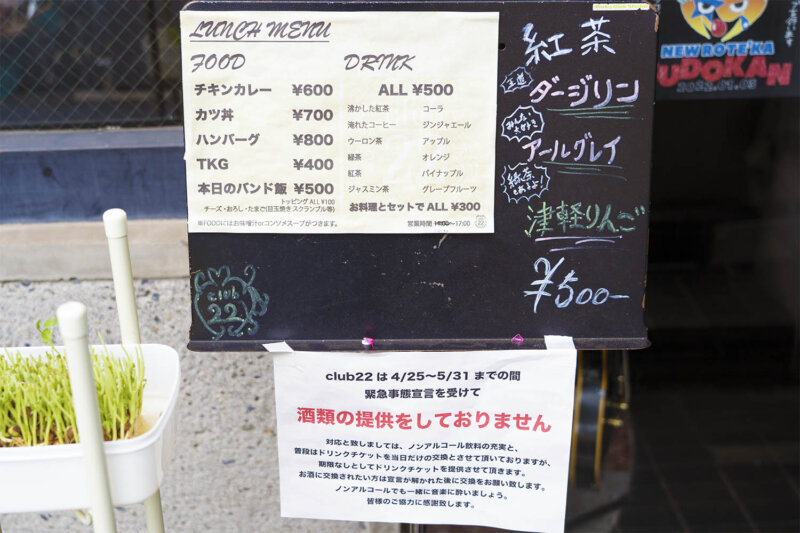 LUNCH MENU
FOOD
チキンカレー ¥600
カツ丼 ¥700
ハンバーグ ¥800
TKG ¥400
本日のバンド飯 ¥500
トッピング ALL ¥100
チーズ・おろし・たまご(目玉焼き スクランブル等)
※FOODにはお味噌汁orコンソメスープがつきます。
DRINK
ALL ¥500
沸かした紅茶 コーラ
淹れたコーヒー ジンジャエール
ウーロン茶 アップル
緑茶 オレンジ
紅茶 パイナップル
ジャスミン茶 グレープフルーツ
お料理とセットで ALL ¥300
営業時間 14:00〜17:00
22
紅茶
王道
ダージリン
みんな大好き
アールグレイ
津軽りんご
¥500-
club
22
NEWROTE'KA
UDOKAN
2022.01.03
club22 は 4/25〜5/31 までの間
緊急事態宣言を受けて
酒類の提供をしておりません
対応と致しましては、ノンアルコール飲料の充実と、
普段はドリンクチケットを当日だけの交換とさせて頂いておりますが、
期限なしとしてドリンクチケットを提供させて頂きます。
お酒に交換されたい方は宣言が解かれた後に交換をお願い致します。
ノンアルコールでも一緒に音楽に酔いましょう。
皆様のご協力に感謝致します。